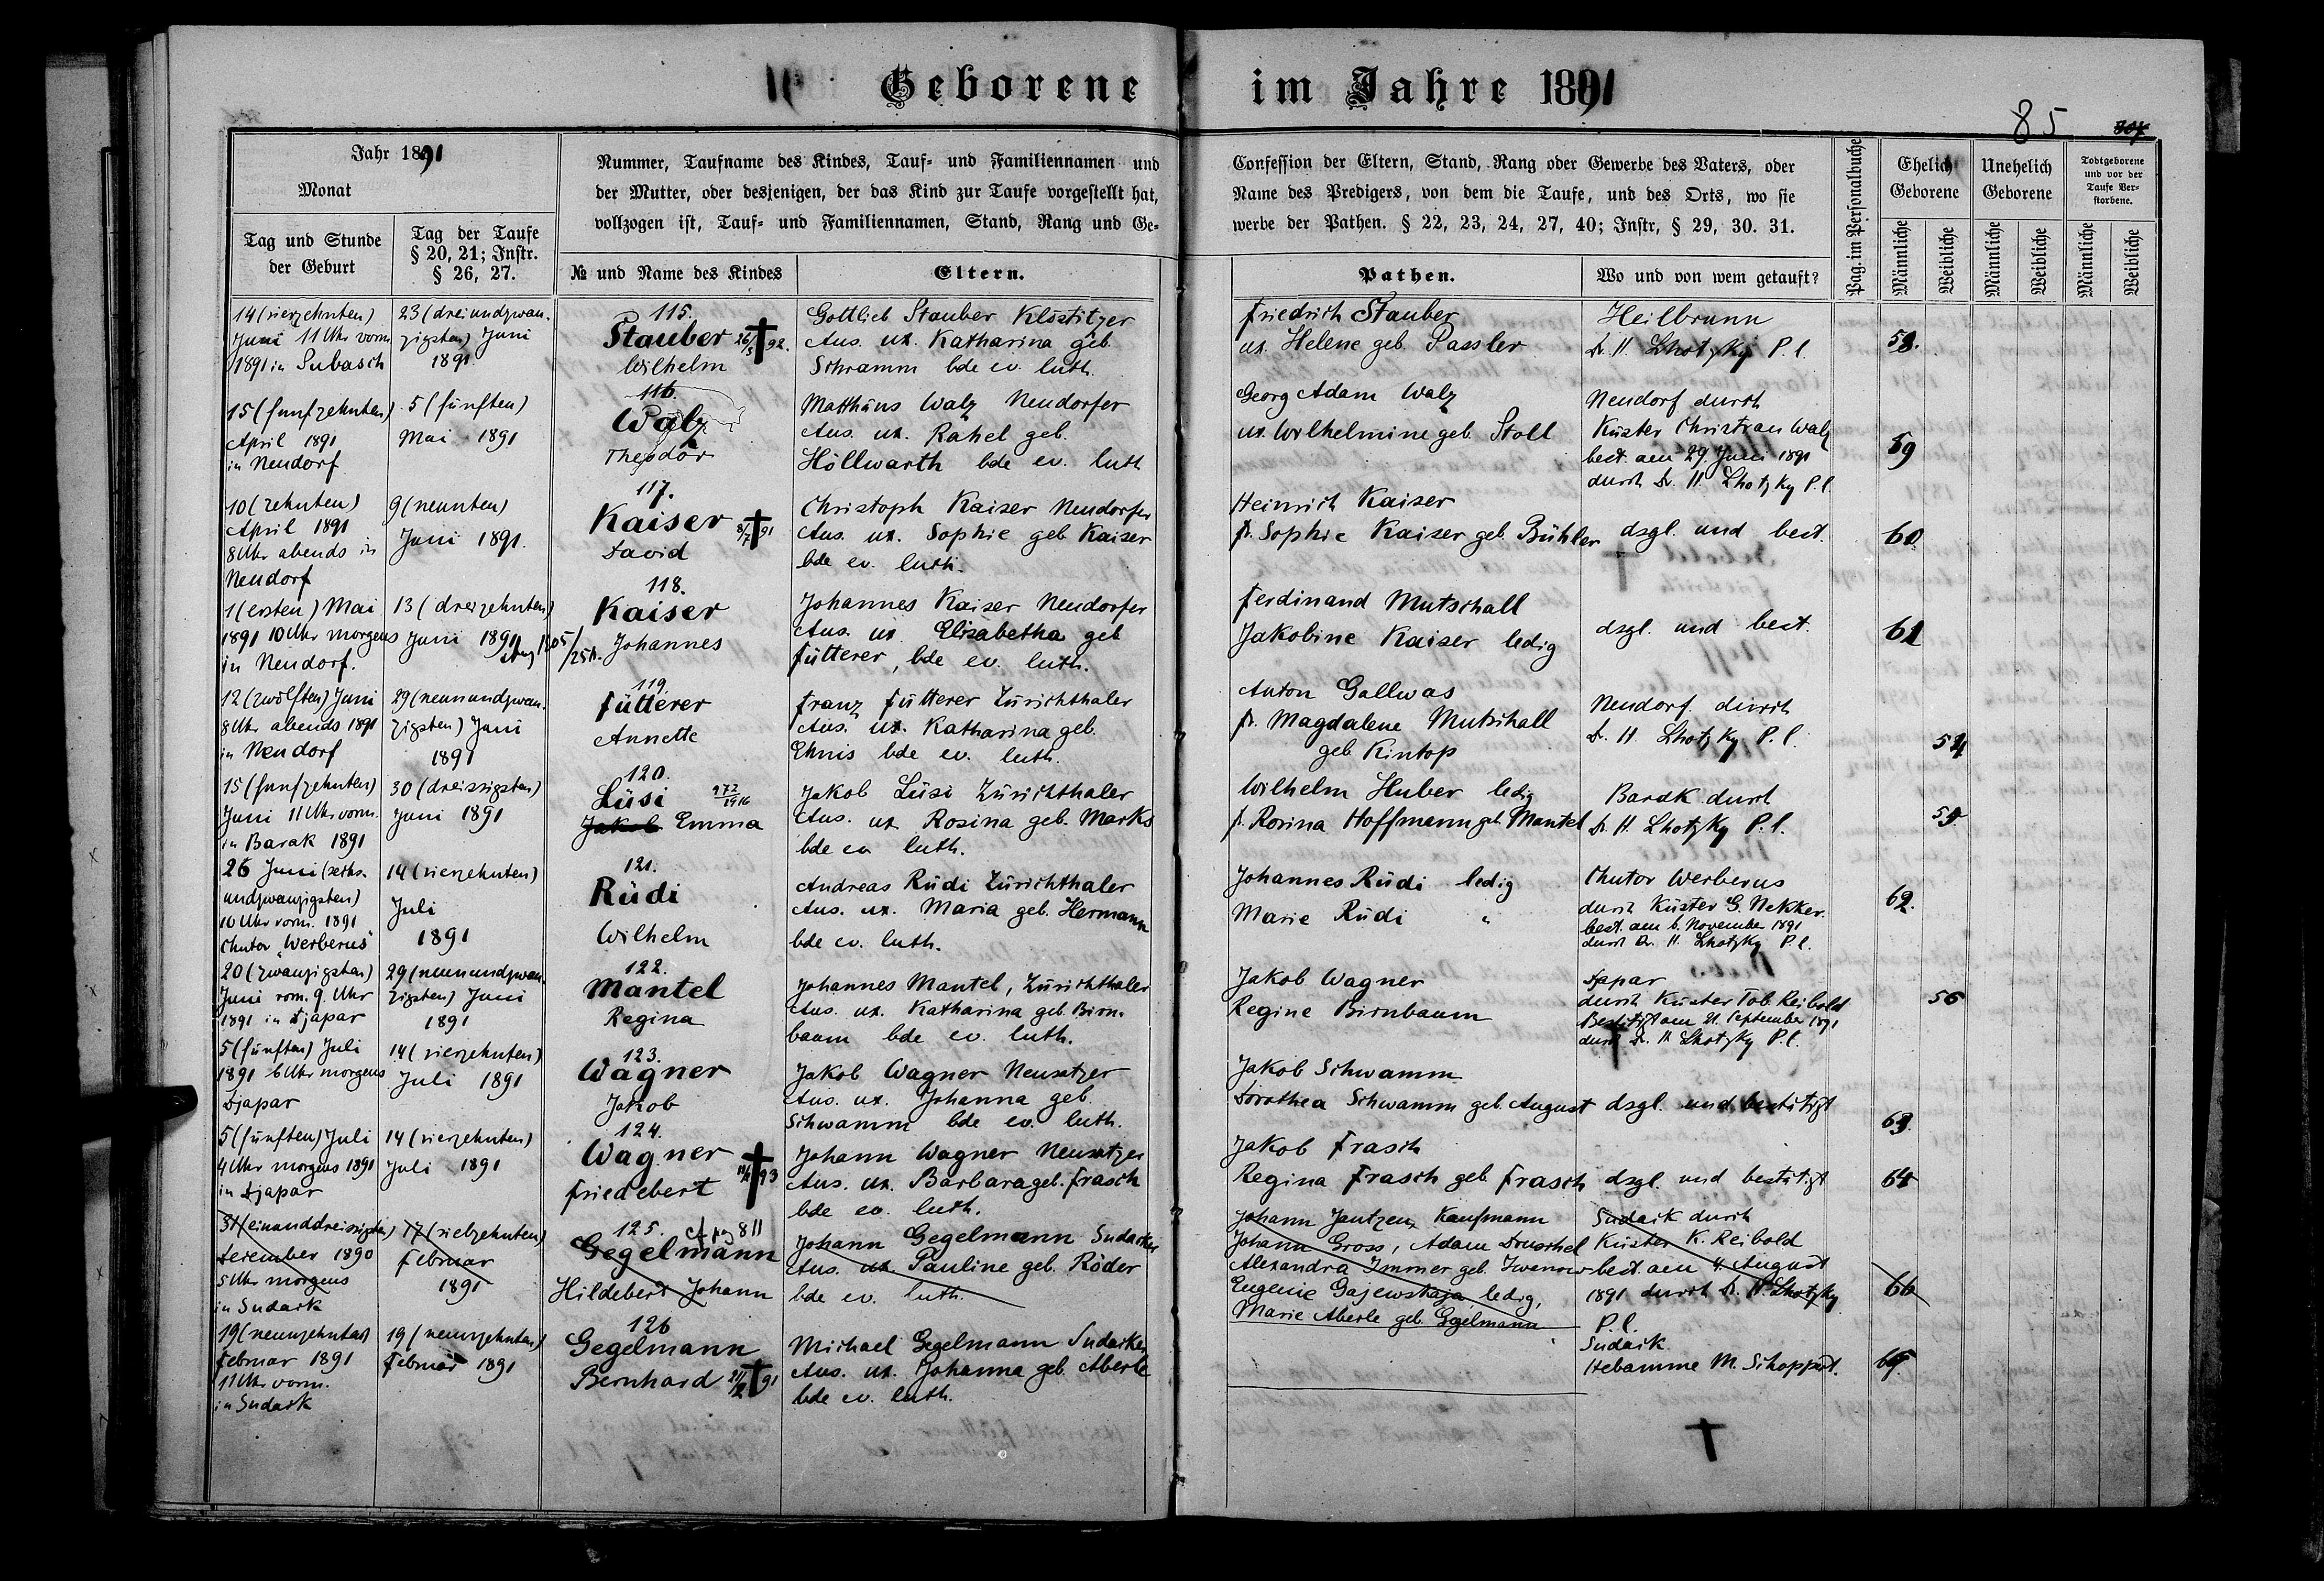 Geborene im Jahre 1891
85
Jahr 1891
Monat
Tag und Stunde
der Geburt
Tag der Taufe
§ 20, 21; Instr.
§ 26, 27.
Nummer, Taufname des Kindes, Tauf- und Familiennamen und
der Mutter, oder desjenigen, der das Kind zur Taufe vorgestellt hat,
vollzogen ist, Tauf- und Familiennamen, Stand, Rang und Ge-
№ und Name des Kindes
Eltern.
Confession der Eltern, Stand, Rang oder Gewerbe des Vaters, oder
Name des Predigers, von dem die Taufe, und des Orts, wo sie
werbe der Pathen. § 22, 23, 24, 27, 40; Instr, § 29, 30. 31.
Pathen.
Wo und von wem getauft?
Pag. im Personalbuche
Ehelich
Geborene
Unehelich
Geborene
Todtgeborene
und vor der
Taufe Ver-
storbene.
Männliche
Weibliche
Männliche
Weibliche
Männliche
Weibliche
14 (vierzehnten)
Juni 11 Uhr vorm
1891 in Subasch
23 (dreiundzwan-
zigsten) Juni
1891.
115.
Stauber 26/5 † 92.
Wilhelm
Gottlieb Stauber Klöstitzer
Aus. ux. Katharina geb.
Schramm bde ev. luth.
Friedrich Stauber
ux. Helene geb. Passler
Heilbrunn
Dr. H. Lhotzky P. l.
58.
15 (funfzehnten)
April 1891
in Neudorf
5 (fünften)
Mai 1891
116.
Walz
Theodor
Matthäus Walz Neudorfer
Aus. ux. Rahel geb.
Höllwarth bde ev. luth
Georg Adam Walz
ux. Wilhelmine geb. Stoll
Neudorf durch
Küster Christian Walz
best. am 29. Juni 1891
durch Dr. H. Lhotzky P. l.
59
10 (zehnten)
April 1891
8 Uhr abends in
Neudorf
9 (neunten)
Juni 1891.
117.
Kaiser 8/7 † 91
David
Christoph Kaiser Neudorfer
Aus. ux. Sophie geb Kaiser
bde ev. luth.
Heinrich Kaiser
Fr. Sophie Kaiser geb. Bühler
dsgl. und best.
60.
1 (ersten) Mai
1891 10 Uhr morgens
in Neudorf.
13 (dreizehnten)
Juni 1891
118.
Kaiser
Johannes
Johannes Kaiser Neudorfer
Aus. ux. Elisabetha geb
Fütterer, bde ev. luth.
Ferdinand Mutschall
Jakobine Kaiser ledig
dsgl. und best.
61
12 (zwölften) Juni
8 Uhr abends 1891
in Neudorf
29 (neunundzwan-
zigsten) Juni
1891
119.
Fütterer
Annette
Franz Fütterer Zürichthaler
Aus. ux. Katharina geb.
Ehnis bde ev. luth.
Anton Gallwas
Fr. Magdalene Mutschall
geb Kintop
Neudorf durch
Dr. H. Lhotzky P. l.
54
15 (funfzehnten)
Juni 11 Uhr vorm.
in Barak 1891
30 (dreissigsten)
Juni 1891
120.
Lüsi 972/1916
Jakob Emma
Jakob Lüsi Zürichthaler
Aus. ux Rosina geb. Marks
bde ev luth.
Wilhelm Huber ledig
F. Rosina Hoffmann geb. Mantel
Barak durch
Dr. H. Lhotzky P. l.
55.
26 Juni (sechs-
undzwanzigsten)
10 Uhr vorm. 1891
Chutor "Werberus"
14 (vierzehnten)
Juli
1891
121.
Rüdi
Wilhelm
Andreas Rüdi Zürichthaler
Aus. ux. Maria geb. Hermann
bde ev. luth.
Johannes Rüdi ledig
Marie Rüdi "
Chutor Werberus
durch Küster G. Nekker.
best. am 6. November 1891
durch Dr. H. Lhotzky P. l.
62.
20 (zwanzigsten)
Juni vorm. 9. Uhr
1891 in Djapar
29 (neunundzwan-
zigsten) Juni
1891
122.
Mantel
Regina
Johannes Mantel, Zürichthaler
Aus. ux. Katharina geb. Birn-
baum bde ev. luth.
Jakob Wagner
Regine Birnbaum
Djapar
durch Küster Tob. Reibold
Bestätigt am 21. September 1891
durch Dr. H. Lhotzky P. l.
56
5 (fünften) Juli
1891 6 Uhr morgens
Djapar
14 (vierzehnten)
Juli 1891
123.
Wagner
Jakob
Jakob Wagner Neusatzer
Aus. ux. Johanna geb.
Schwamm bde ev. luth.
Jakob Schwamm
Dorothea Schwamm geb. August
dsgl. und bestätigt
63.
5 (fünften) Juli
4 Uhr morgens 1891
in Djapar
14 (vierzehnten)
Juli 1891
124.
Wagner † 93
Friedebert
Johann Wagner Neusatzer
Aus. ux. Barbara geb. Frasch
bde ev. luth.
Jakob Frasch
Regina Frasch geb Frasch
dsgl. und bestätigt
64
31 (einunddreissigsten)
Dezember 1890
5 Uhr morgens
in Sudack
17 (siebzehnten)
Februar
1891
125. cf pag 811
Gegelmann
Hildebert Johann
Johann Gegelmann Sudacker
Aus. ux. Pauline geb. Röder
bde ev. luth.
Johann Jantzen, Kaufmann
Johann Gross, Adam Druschel
Alexandra Immer geb. Iwanow
Eugenie Gajewskaja ledig,
Marie Aberle geb. Gegelmann
Sudack durch
Küster K. Reibold
best. am 4. August
1891 durch Dr. H. Lhotzky
P. l.
66
19 (neunzehnten)
Februar 1891
11 Uhr vorm.
in Sudack
19 (neunzehnten)
Februar 1891
126
Gegelmann
Bernhard 21/2 † 91
Michael Gegelmann Sudacker
Aus. ux. Johanna geb. Aberle
bde ev. luth.
Sudack
Hebamme M. Schoppert.
65.